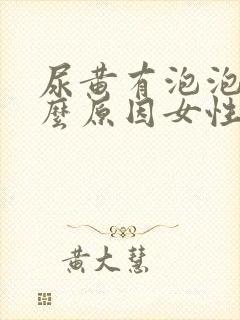 尿黄有泡泡
麼原因女性
黄大慧